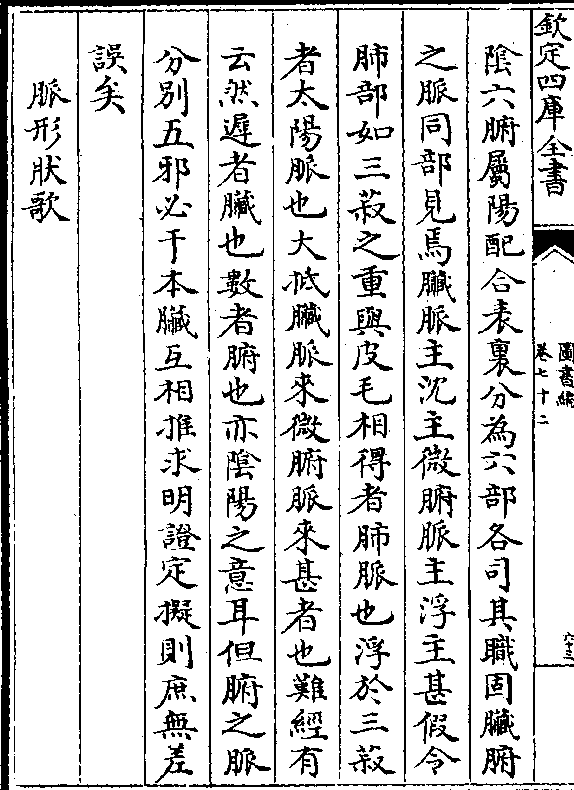 欽定四庫全書
圖書編
卷七十二
六十三
陰六腑屬陽配合表裏分為六部各司其職固臟腑
之脈同部見焉臟脈主沈主微腑脈主浮主甚假令
肺部如三菽之重與皮毛相得者肺脈也浮於三菽
者太陽脈也大低臟脈來微腑脈來甚者也難經有
云然遲者臟也數者腑也亦陰陽之意耳但腑之脈
分別五邪必干本臟互相推求明證定擬則庶無差
誤矣
脈形狀歌